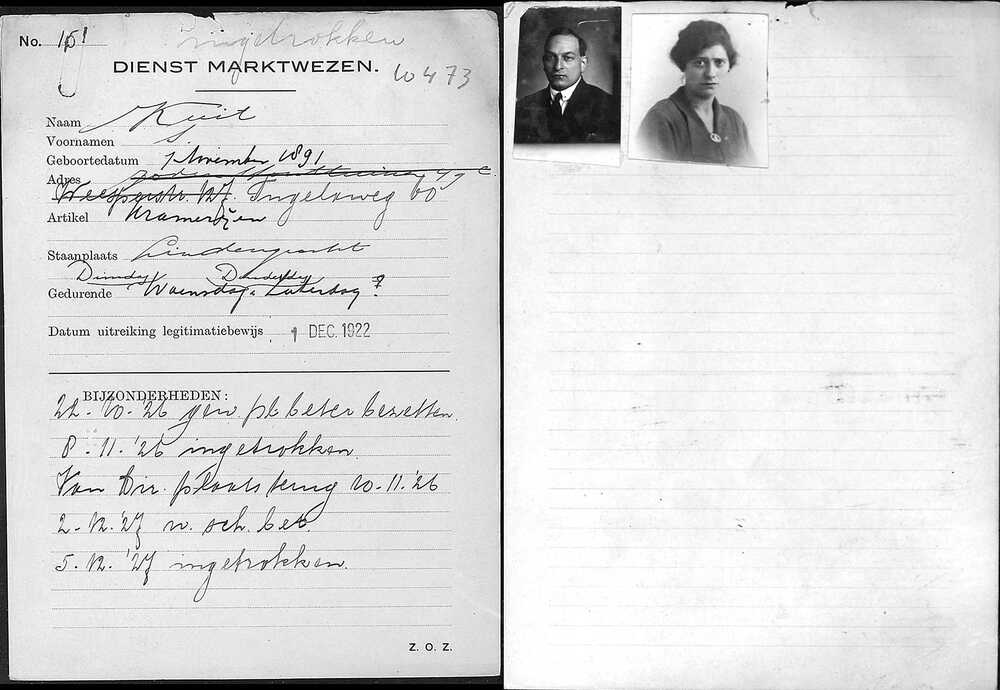 No. 151
ingetrokken
DIENST MARKTWEZEN.
10473
Naam Kuit
Voornamen S.
Geboortedatum 1 November 1891
Adres 49 c
Weesperstr. 127. Tugelaweg 60
Artikel Kramerijen
Staanplaats Lindengracht
Dinsdag Donderdag
Gedurende Woensdag & Zaterdag ?
Datum uitreiking legitimatiebewijs 1 DEC. 1922
BIJZONDERHEDEN:
22-10-'26 gew. pl. beter bezetten.
8-11-'26 ingetrokken.
Van Dir. plaats terug 10-11-'26
2-12-'27 n. sch. bet.
5-12-'27 ingetrokken.
Z. O. Z.